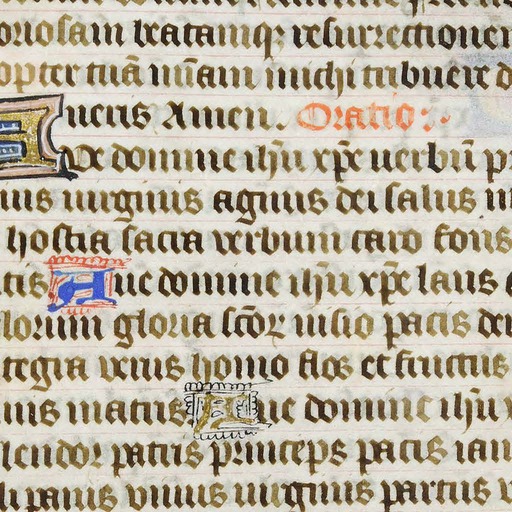 oriosam beatamq; resurrectionem
opter tuā mīam michi tribuere d
neris Amen. Oratio
Aue domine ihū xp̄e uerbū p
rius uirginis agnus dei salus m
hostia sacra verbum caro fons
tis Aue domine ihū xp̄e laus
lorum gloria scōꝝ uisio pacis dei
tegra verus homo flos et fructus
nis matris Aue domine ihū x
lendor patris princeps pacis ian
li panis viuus uirginis partus v